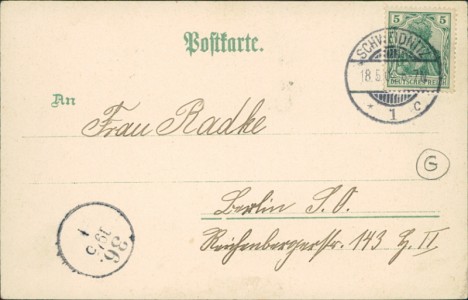 Postkarte.
5 5
DEUTSCHES REICH
SCHWEIDNITZ
18.5
* 1 c
An
Frau Radke
G
Berlin S.O.
Reichenbergerstr. 143 H. II
36.
19 5